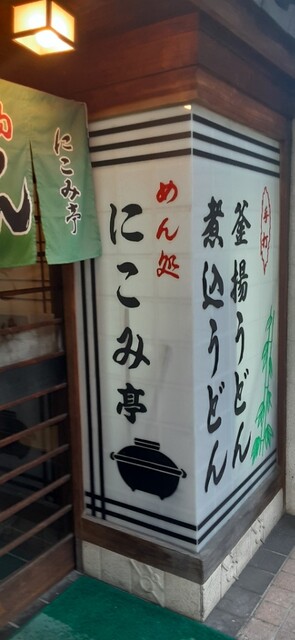 にこみ亭
めん処
にこみ亭
手打
釜揚うどん
煮込うどん